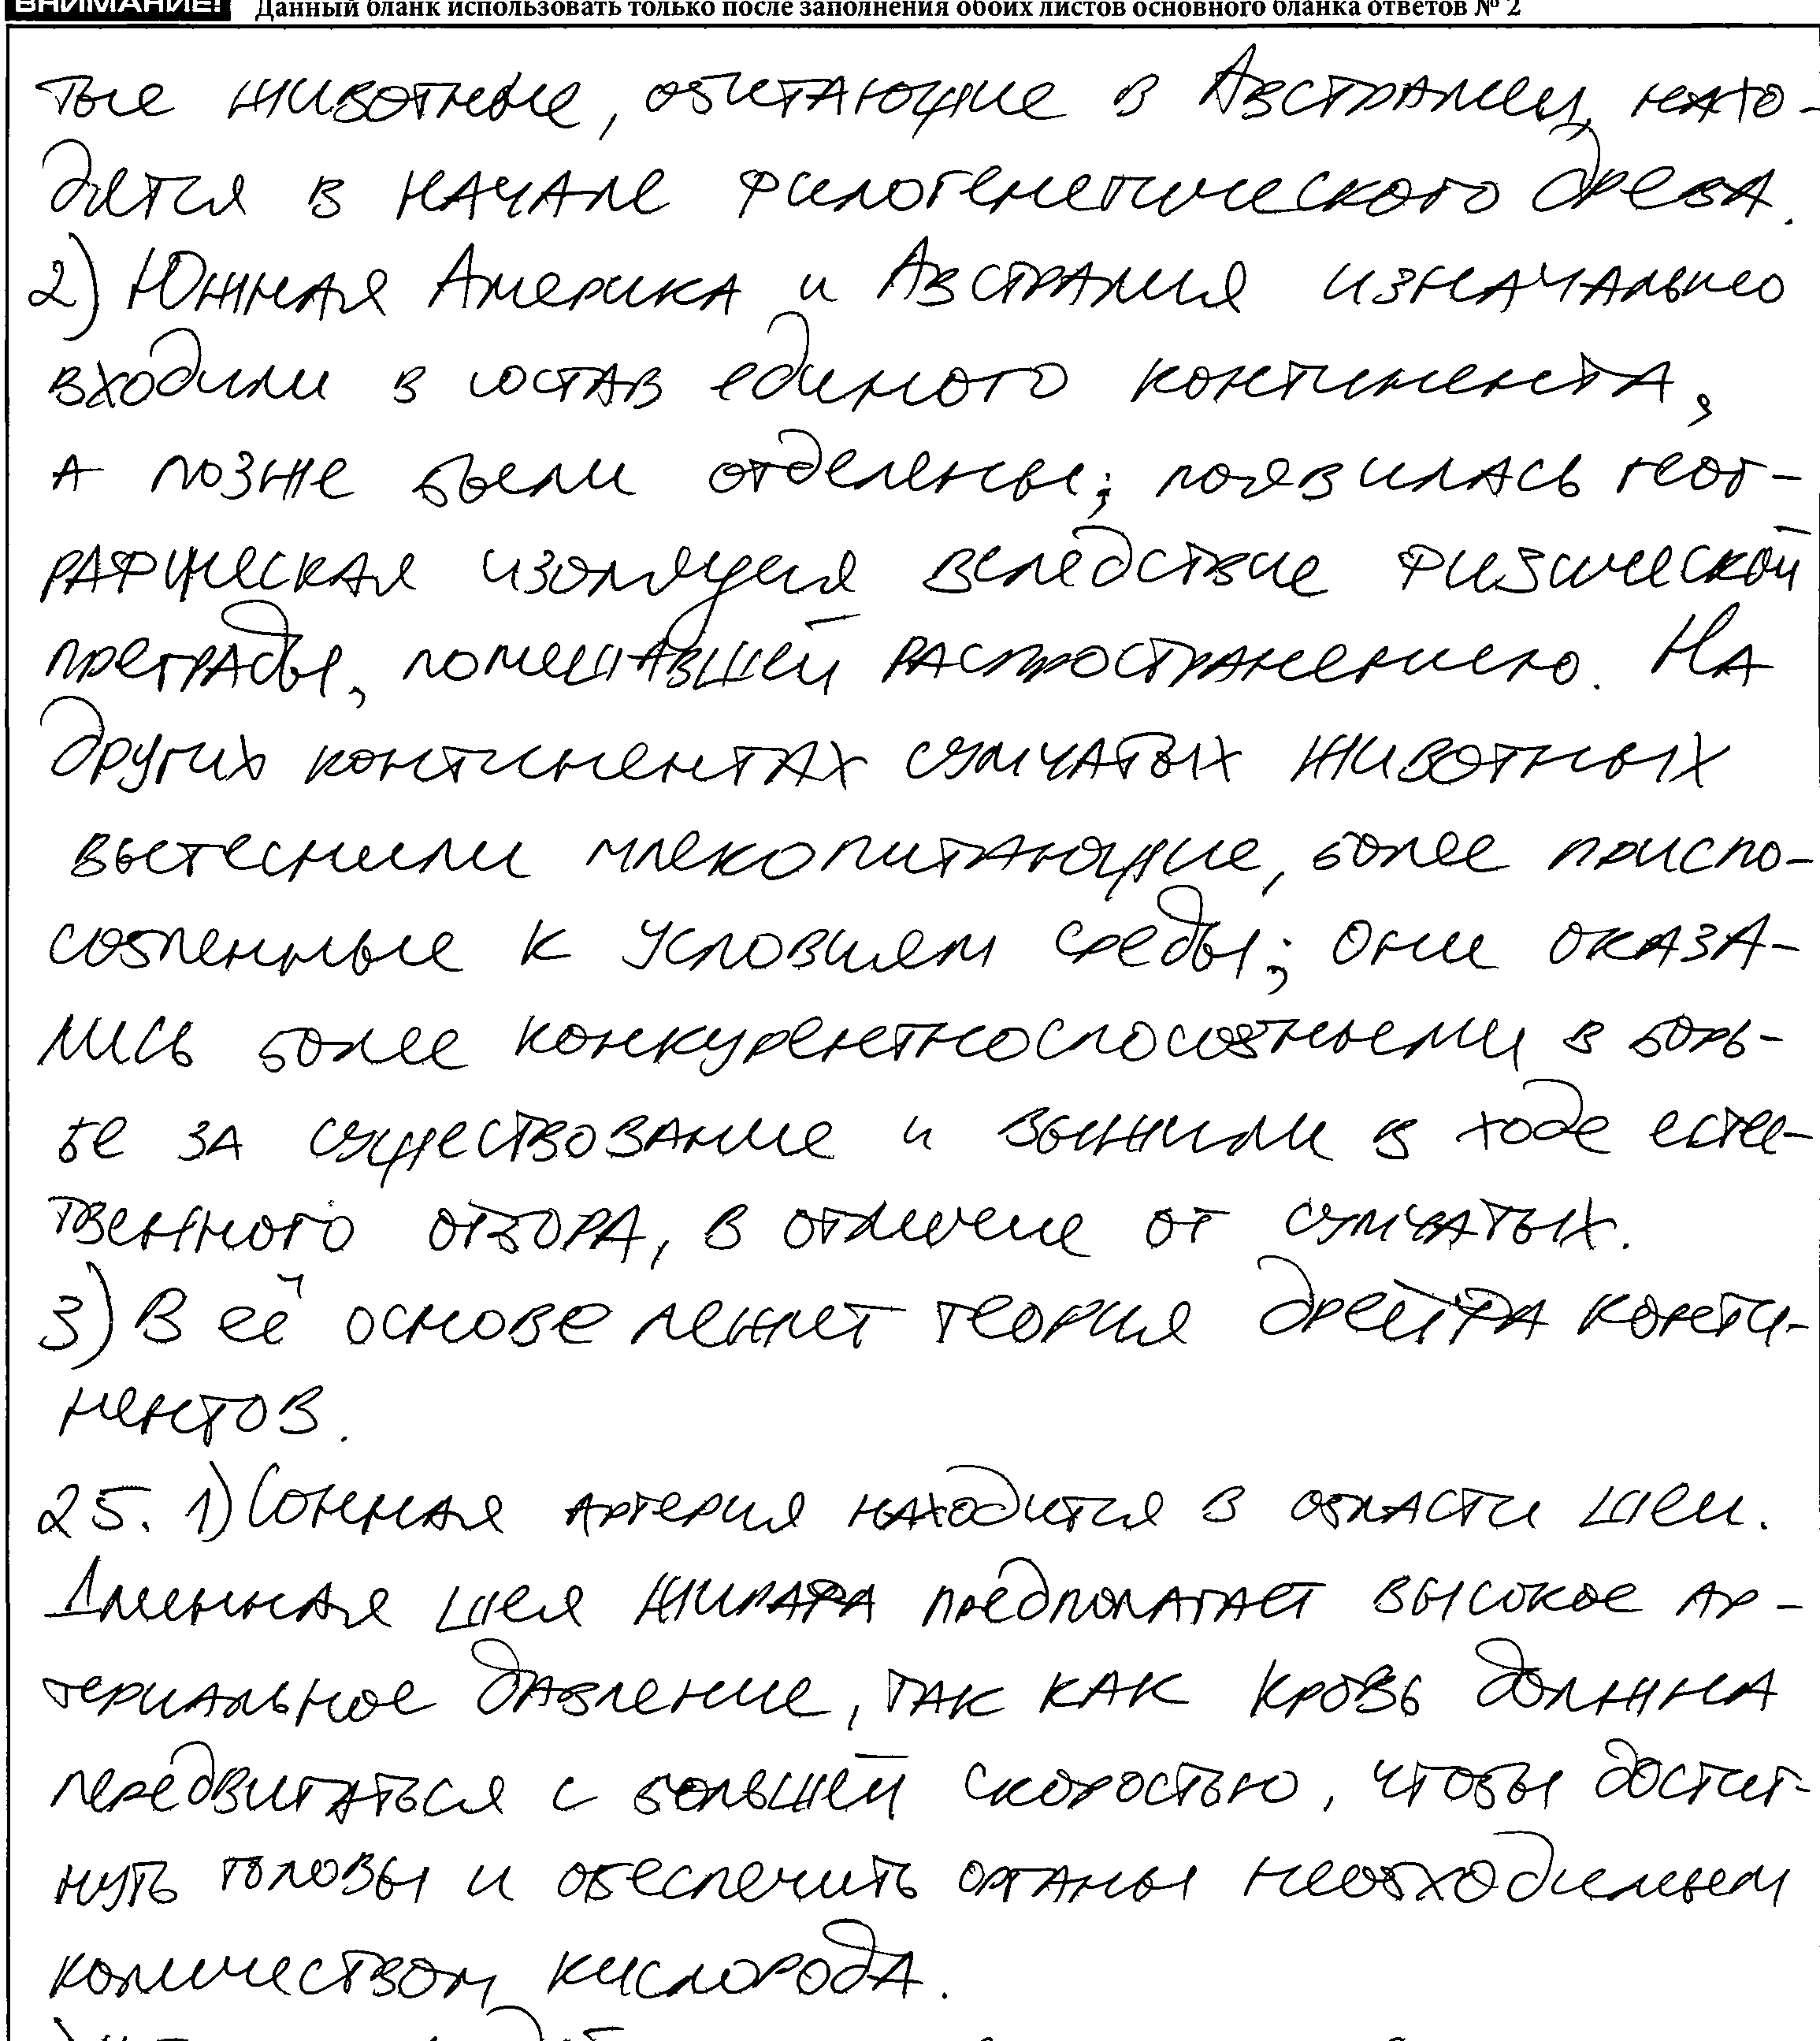 ВНИМАНИЕ! Данный бланк использовать только после заполнения обоих листов основного бланка ответов № 2
тые животные, обитающие в Австралии, нахо-
дятся в начале филогенетического древа.
2) Южная Америка и Австралия изначально
входили в состав единого континента,
а позже были отделены; появилась геог-
рафическая изоляция вследствие физической
преграды, помешавшей распространению. На
других континентах сумчатых животных
вытеснили млекопитающие, более приспо-
собленные к условиям среды; они оказа-
лись более конкурентноспособными в борь-
бе за существование и выжили в ходе естес-
твенного отбора, в отличие от сумчатых.
3) В её основе лежит теория дрейфа конти-
нентов.
25. 1) Сонная артерия находится в области шеи.
Длинная шея жирафа предполагает высокое ар-
териальное давление, так как кровь должна
передвигаться с большей скоростью, чтобы достиг-
нуть головы и обеспечить органы необходимым
количеством кислорода.